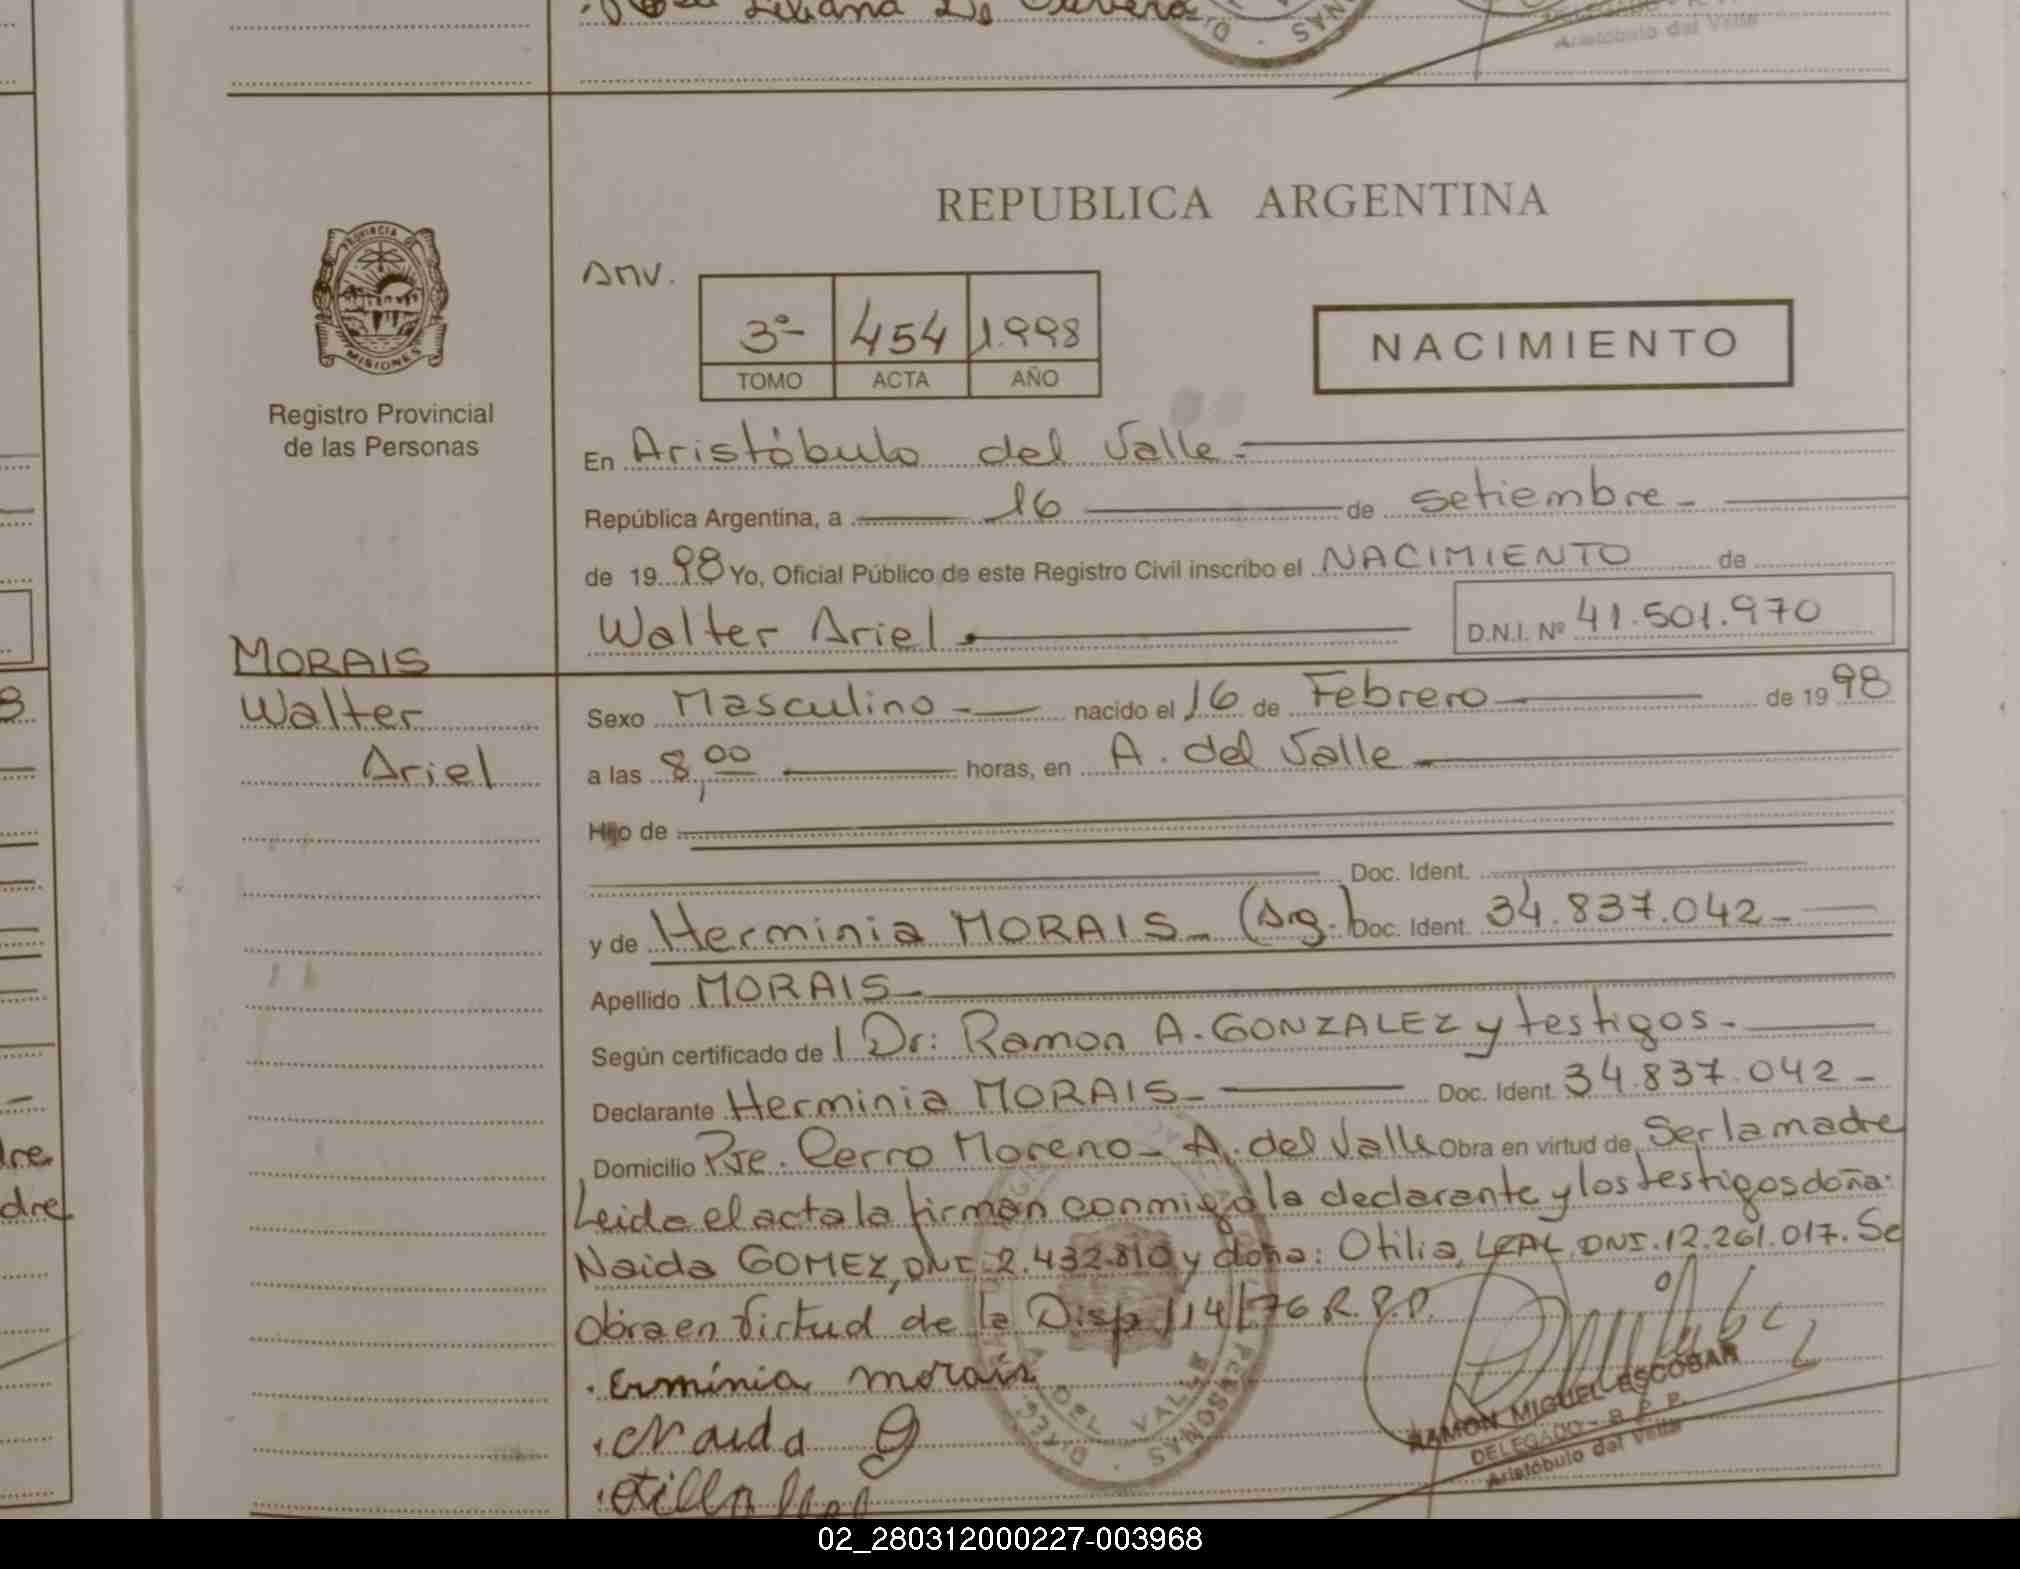 Aristóbulo del Valle
REPUBLICA ARGENTINA
PROVINCIA DE
MISIONES
Registro Provincial
de las Personas
Anv.
3º 454 1.998
TOMO ACTA AÑO
NACIMIENTO
En Aristóbulo del Valle.-
República Argentina, a 16 de setiembre-
de 19 98 Yo, Oficial Público de este Registro Civil inscribo el NACIMIENTO de
Walter Ariel D.N.I. Nº 41.501.970
MORAIS
Walter
Ariel
Sexo Masculino nacido el 16 de Febrero de 19 98
a las 8,00 horas, en A. del Valle
Hijo de
Doc. Ident.
y de Herminia MORAIS- (Arg.) Doc. Ident. 34.837.042-
Apellido MORAIS-
Según certificado de Dr: Ramon A. GONZALEZ y testigos-
Declarante Herminia MORAIS- Doc. Ident. 34.837.042-
Domicilio Pje. Cerro Moreno- A. del Valle Obra en virtud de Ser la madre
Leida el acta la firman conmigo la declarante y los testigos doña:
Naida GOMEZ, DNI 2.432.810 y doña: Otilia LEAL, DNI.12.261.017. Se
obra en virtud de la Disp 114/76 R.P.P.
Erminia morais
Naida G
otilia leal
RAMON MIGUEL ESCOBAR
DELEGADO - R. P. P.
Aristóbulo del Valle
DEL VALLE
PERSONAS
02_280312000227-003968